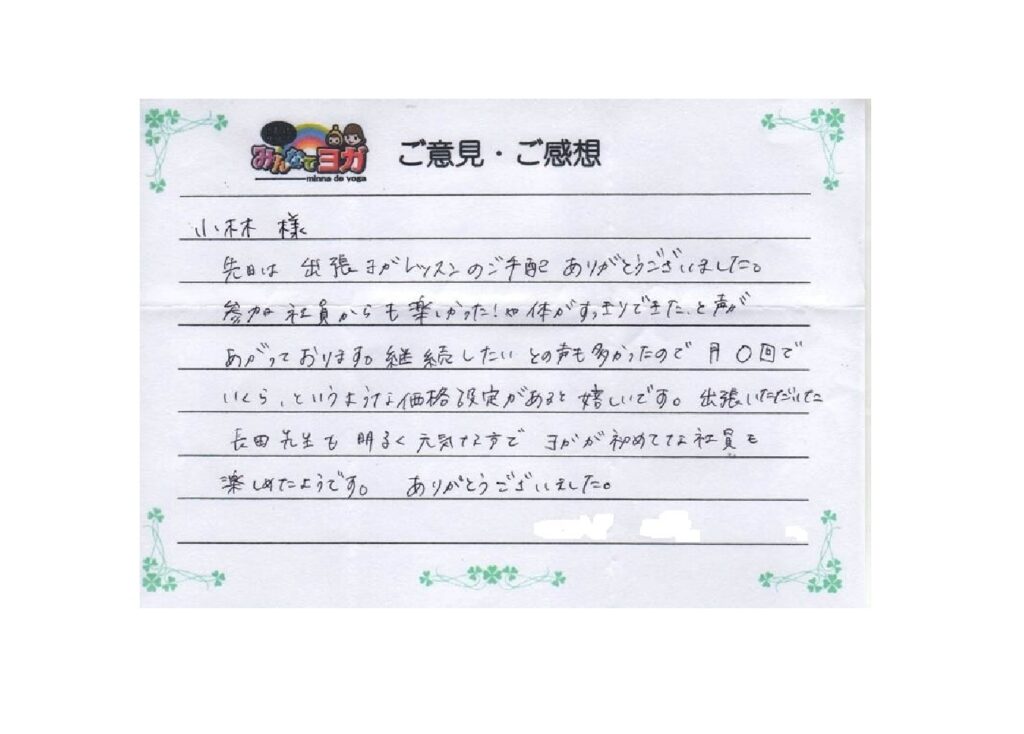 みんなでヨガ
minna de yoga
ご意見・ご感想
小林 様
先日は 出張ヨガレッスンのご手配 ありがとうございました。
参加 社員からも楽しかった！や体がすっきりできた、と声が
あがっております。継続したいとの声も多かったので 月〇回で
いくら、というような価格設定があると嬉しいです。出張いただいた
長田先生も 明るく元気な方で ヨガが初めてな社員も
楽しめたようです。 ありがとうございました。